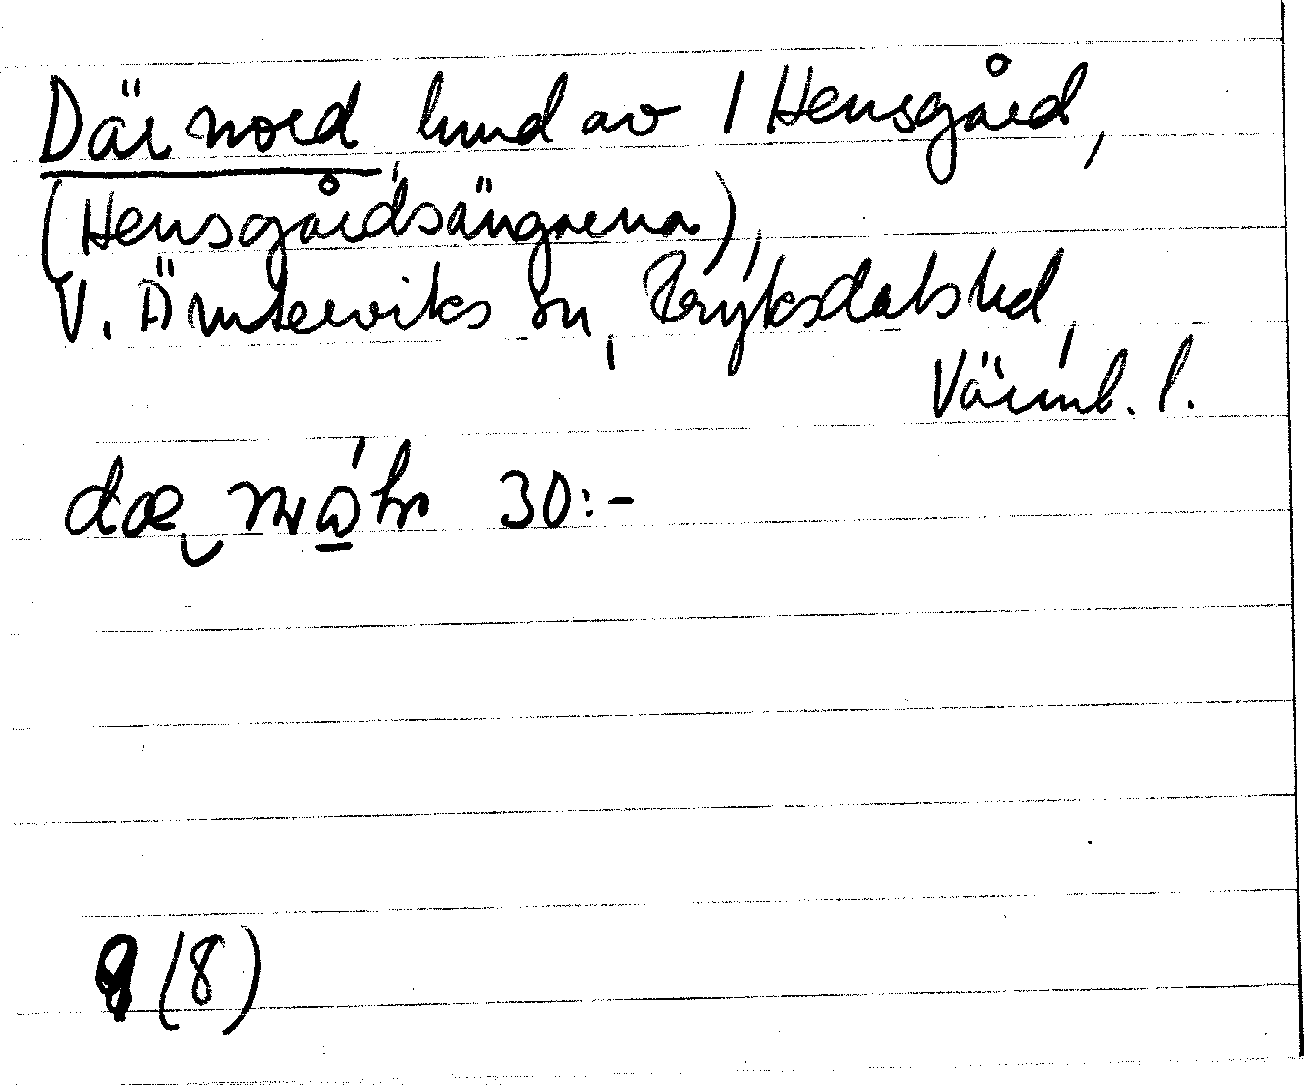 Där nord, hmd av 1 Hensgård,
(Hensgårdsängarna),
V. Ämterviks sn, Fryksdals hd,
Värml. l.
30:-
9 (8)